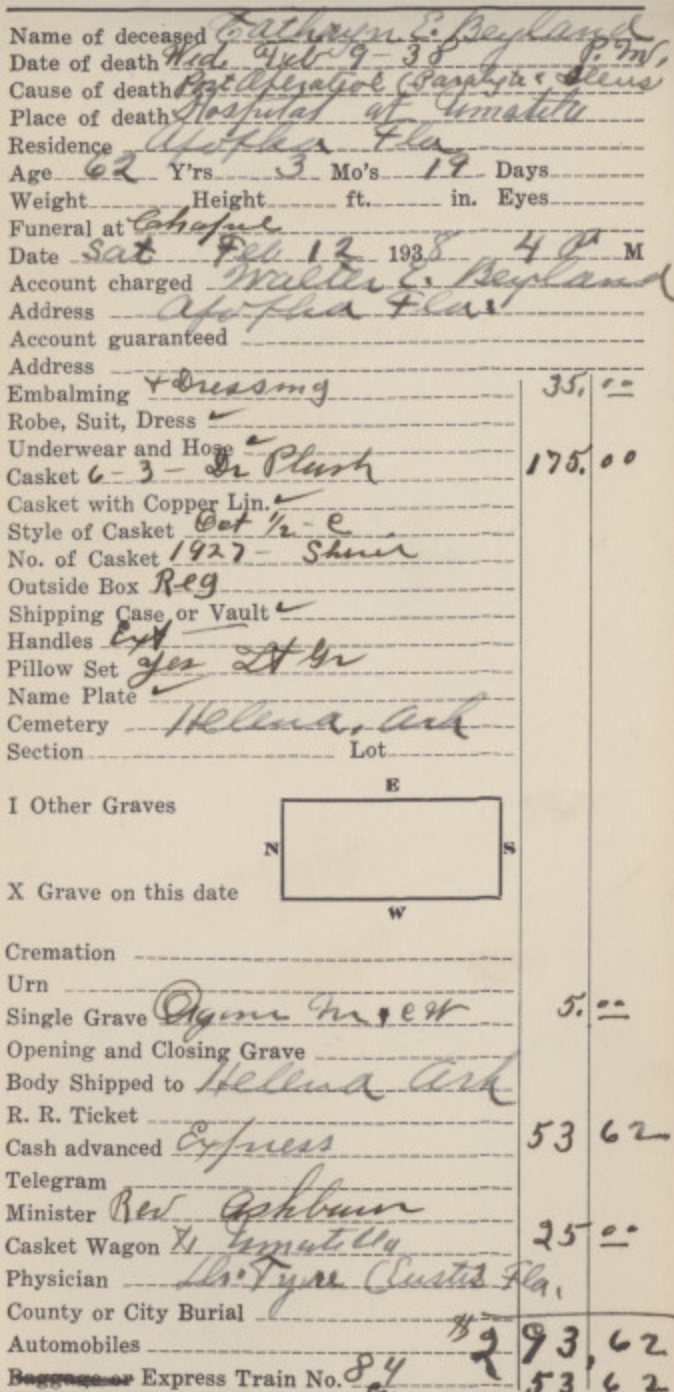 Name of deceased Cathryn E. Beyland
Date of death Wed. Feb 9-38 P.M.
Cause of death Post Operative (Paralytic Ileus
Place of death Hospital at Umatilla
Residence Apopka Fla
Age 62 Y'rs 3 Mo's 19 Days
Weight Height ft. in. Eyes
Funeral at Chapel
Date Sat Feb 12 1938 4 P M
Account charged Walter E. Beyland
Address Apopka Fla.
Account guaranteed
Address
Embalming + Dressing 35.00
Robe, Suit, Dress ✓
Underwear and Hose ✓
Casket 6-3- Plush 175.00
Casket with Copper Lin. ✓
Style of Casket Oct 1/2 - C
No. of Casket 1927-
Outside Box Reg
Shipping Case or Vault ✓
Handles Ext
Pillow Set Yes Lt Gr
Name Plate ✓
Cemetery Helena, Ark
Section Lot
E
I Other Graves
N S
X Grave on this date
W
Cremation
Urn
Single Grave 5.00
Opening and Closing Grave
Body Shipped to Helena Ark
R. R. Ticket
Cash advanced Express 53 62
Telegram
Minister Rev Ashburn
Casket Wagon Umatilla 25 00
Physician Dr. Tyre (Eustis Fla.
County or City Burial
Automobiles $293.62
Baggage or Express Train No. 84 53 62